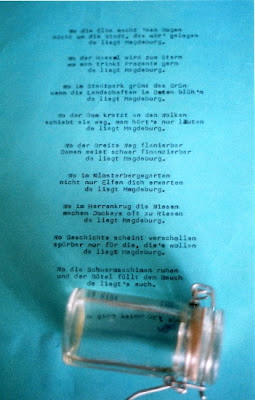 Wo die Elbe macht 'nen Bogen
nicht um die Stadt, das wär' gelogen
da liegt Magdeburg.
Wo der Hassel wird zum Stern
wo man trinkt Prozente gern
da liegt Magdeburg.
Wo im Stadtpark grünt das Grün
wenn die Landschaften im Osten blüh'n
da liegt Magdeburg.
Wo der Dom kratzt an den Wolken
schiebt sie weg, man hört's nur läuten
da liegt Magdeburg.
Wo der Breite Weg flanierbar
Damen meist schwer finanzierbar
da liegt Magdeburg.
Wo im Klosterbergegarten
nicht nur Elfen dich erwarten
da liegt Magdeburg.
Wo im Herrenkrug die Wiesen
machen Jockeys oft zu Riesen
da liegt Magdeburg.
Wo Geschichte scheint verschollen
spürbar nur für die, die's wollen
da liegt Magdeburg.
Wo die Schwermaschinen ruhen
und der Bötel füllt den Bauch
da liegt's auch.